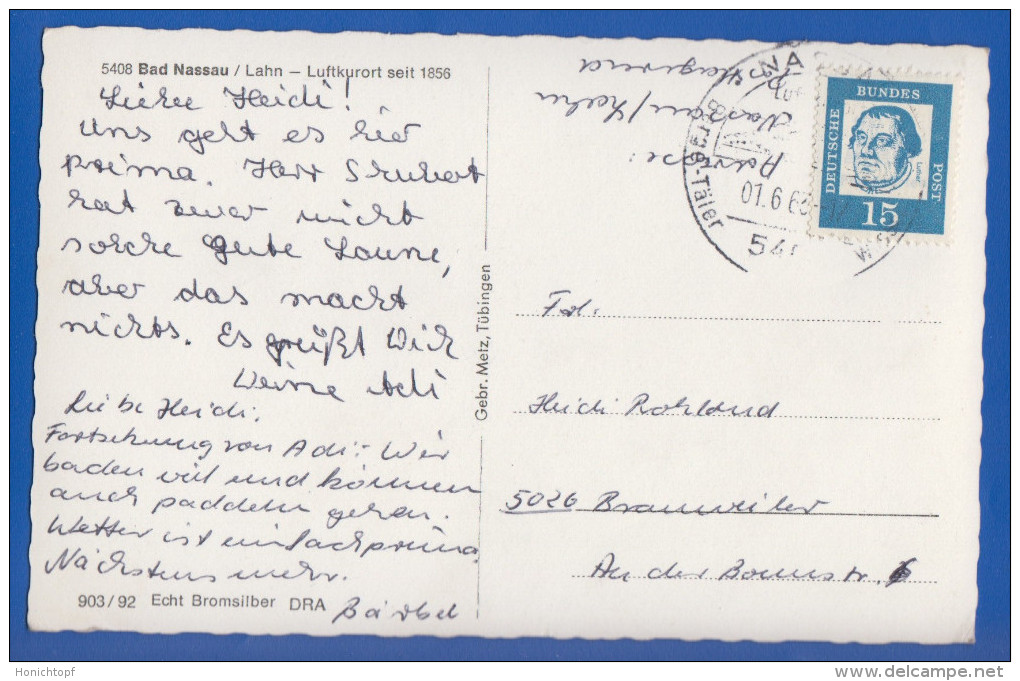 5408 Bad Nassau / Lahn – Luftkurort seit 1856
Lieber Heidi!
Uns geht es hier
prima. Herr Schubert
hat zwar nicht
solche gute Laune,
aber das macht
nichts. Es grüßt Dich
Deine Adi
Liebe Heidi.
Fortsetzung von Adi:- Wir
baden viel und können
auch paddeln gehen.
Wetter ist einfach prima
Nächstens mehr.
Bärbel
903/92 Echt Bromsilber DRA
Gebr. Metz, Tübingen
Adresse:
Nassau/Lahn
Berg-Täler
01.6.6
DEUTSCHE
BUNDES
POST
Luther
15
Frl.
Heidi Rohland
5026 Brauweiler
An der Bonnstr. 6
Honichtopf
www.delcampe.net